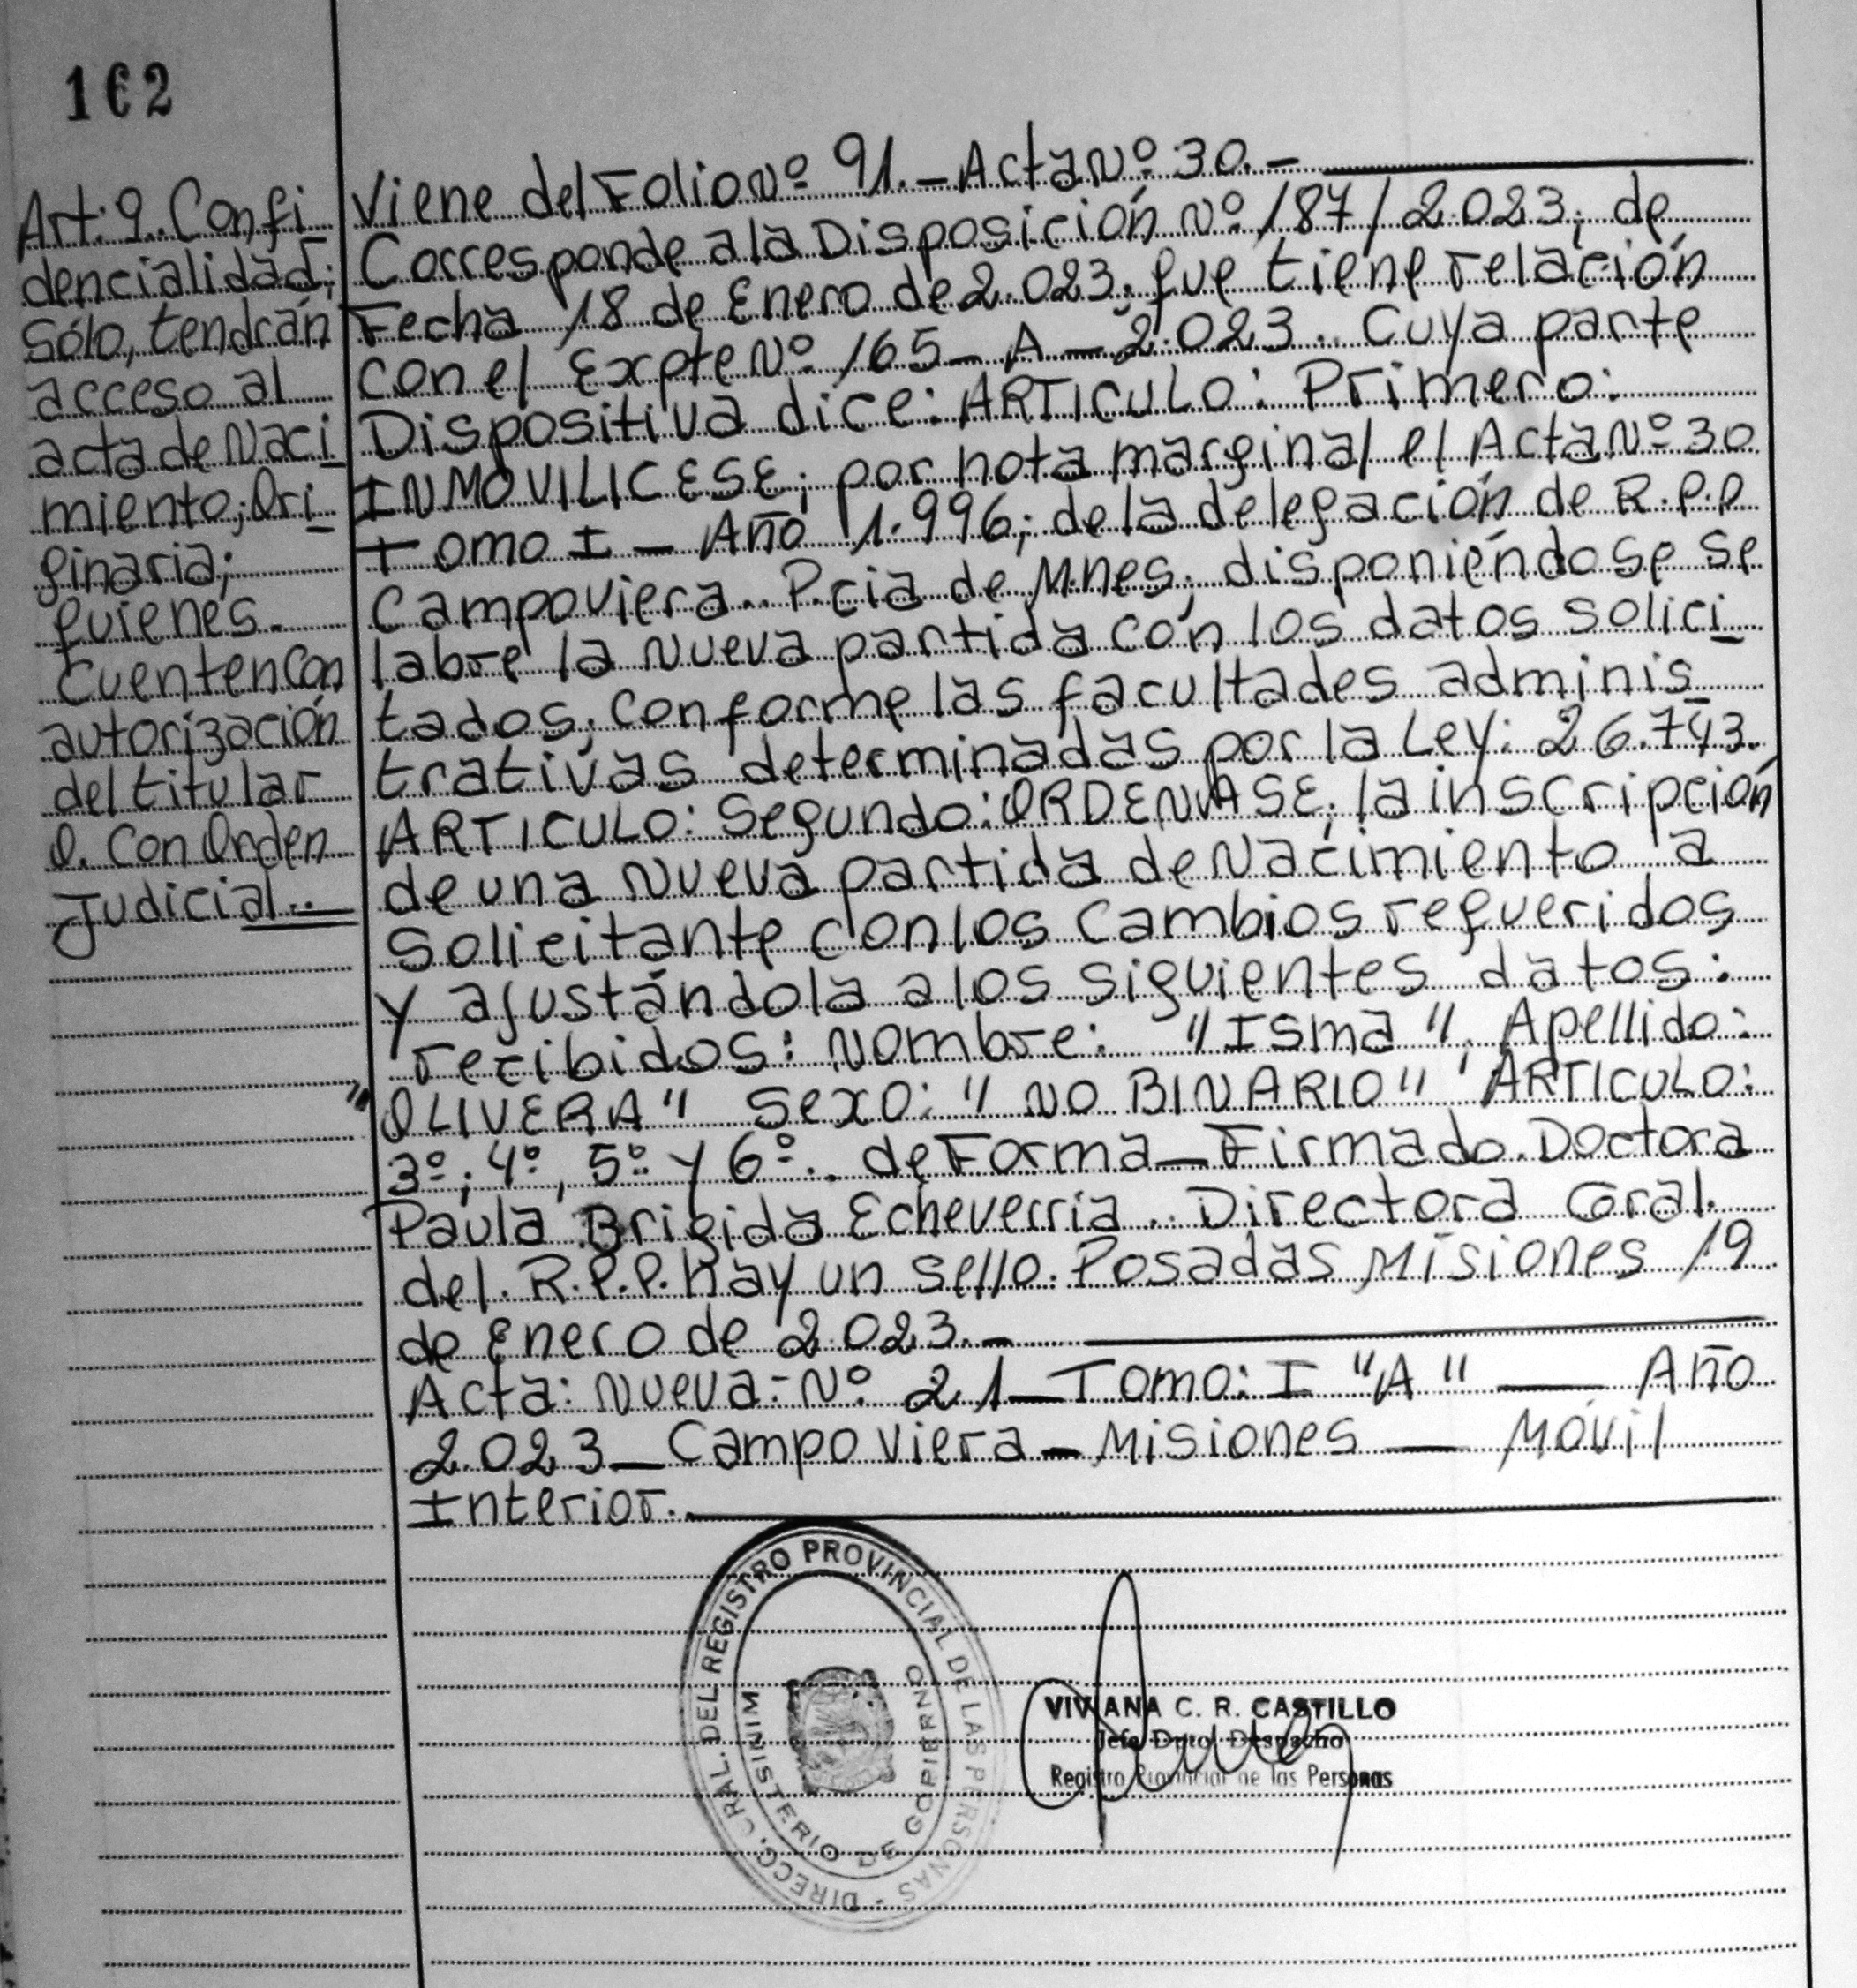 162
Art: 9. Confi
dencialidad;
Sólo, tendrán
acceso al
acta de Naci
miento; Ori
ginaria;
quienes.
Cuenten Con
autorización
del titular
O. Con Orden
Judicial..
Viene del Folio Nº 91.- Acta Nº 30.-
Corresponde a la Disposición Nº 187/2.023; de
Fecha 18 de Enero de 2.023. que tiene relación
con el Expte Nº 165- A - 2.023.. Cuya parte
Dispositiva dice: ARTICULO: Primero:
INMOVILICESE; por nota marginal el Acta Nº 30
Tomo I - Año 1.996; de la delegación de R.P.P
Campoviera.. P.cia de M.nes; disponiéndose se
labre la nueva partida con los datos solici
tados; conforme las facultades adminis
trativas determinadas por la Ley: 26.743.
ARTICULO: Segundo: ORDENASE; la inscripción
de una nueva partida de Nacimiento a
Solicitante con los Cambios requeridos
y ajustándola a los siguientes datos:
recibidos: Nombre: "Isma", Apellido:
"OLIVERA" Sexo: "NO BINARIO" ARTICULO:
3º; 4º, 5º y 6º.. de Forma - Firmado. Doctora
Paula Brigida Echeverría.. Directora Gral.
del. R.P.P. Hay un sello. Posadas Misiones 19
de Enero de 2.023.-
Acta: Nueva: Nº 21 - Tomo: I "A" — Año
2.023 - Campo Viera - Misiones — Móvil
Interior.
DIRECC. GRAL. DEL REGISTRO PROVINCIAL DE LAS PERSONAS -
MINISTERIO DE GOBIERNO
VIVIANA C. R. CASTILLO
Jefe Dpto. Despacho
Registro Provincial de las Personas